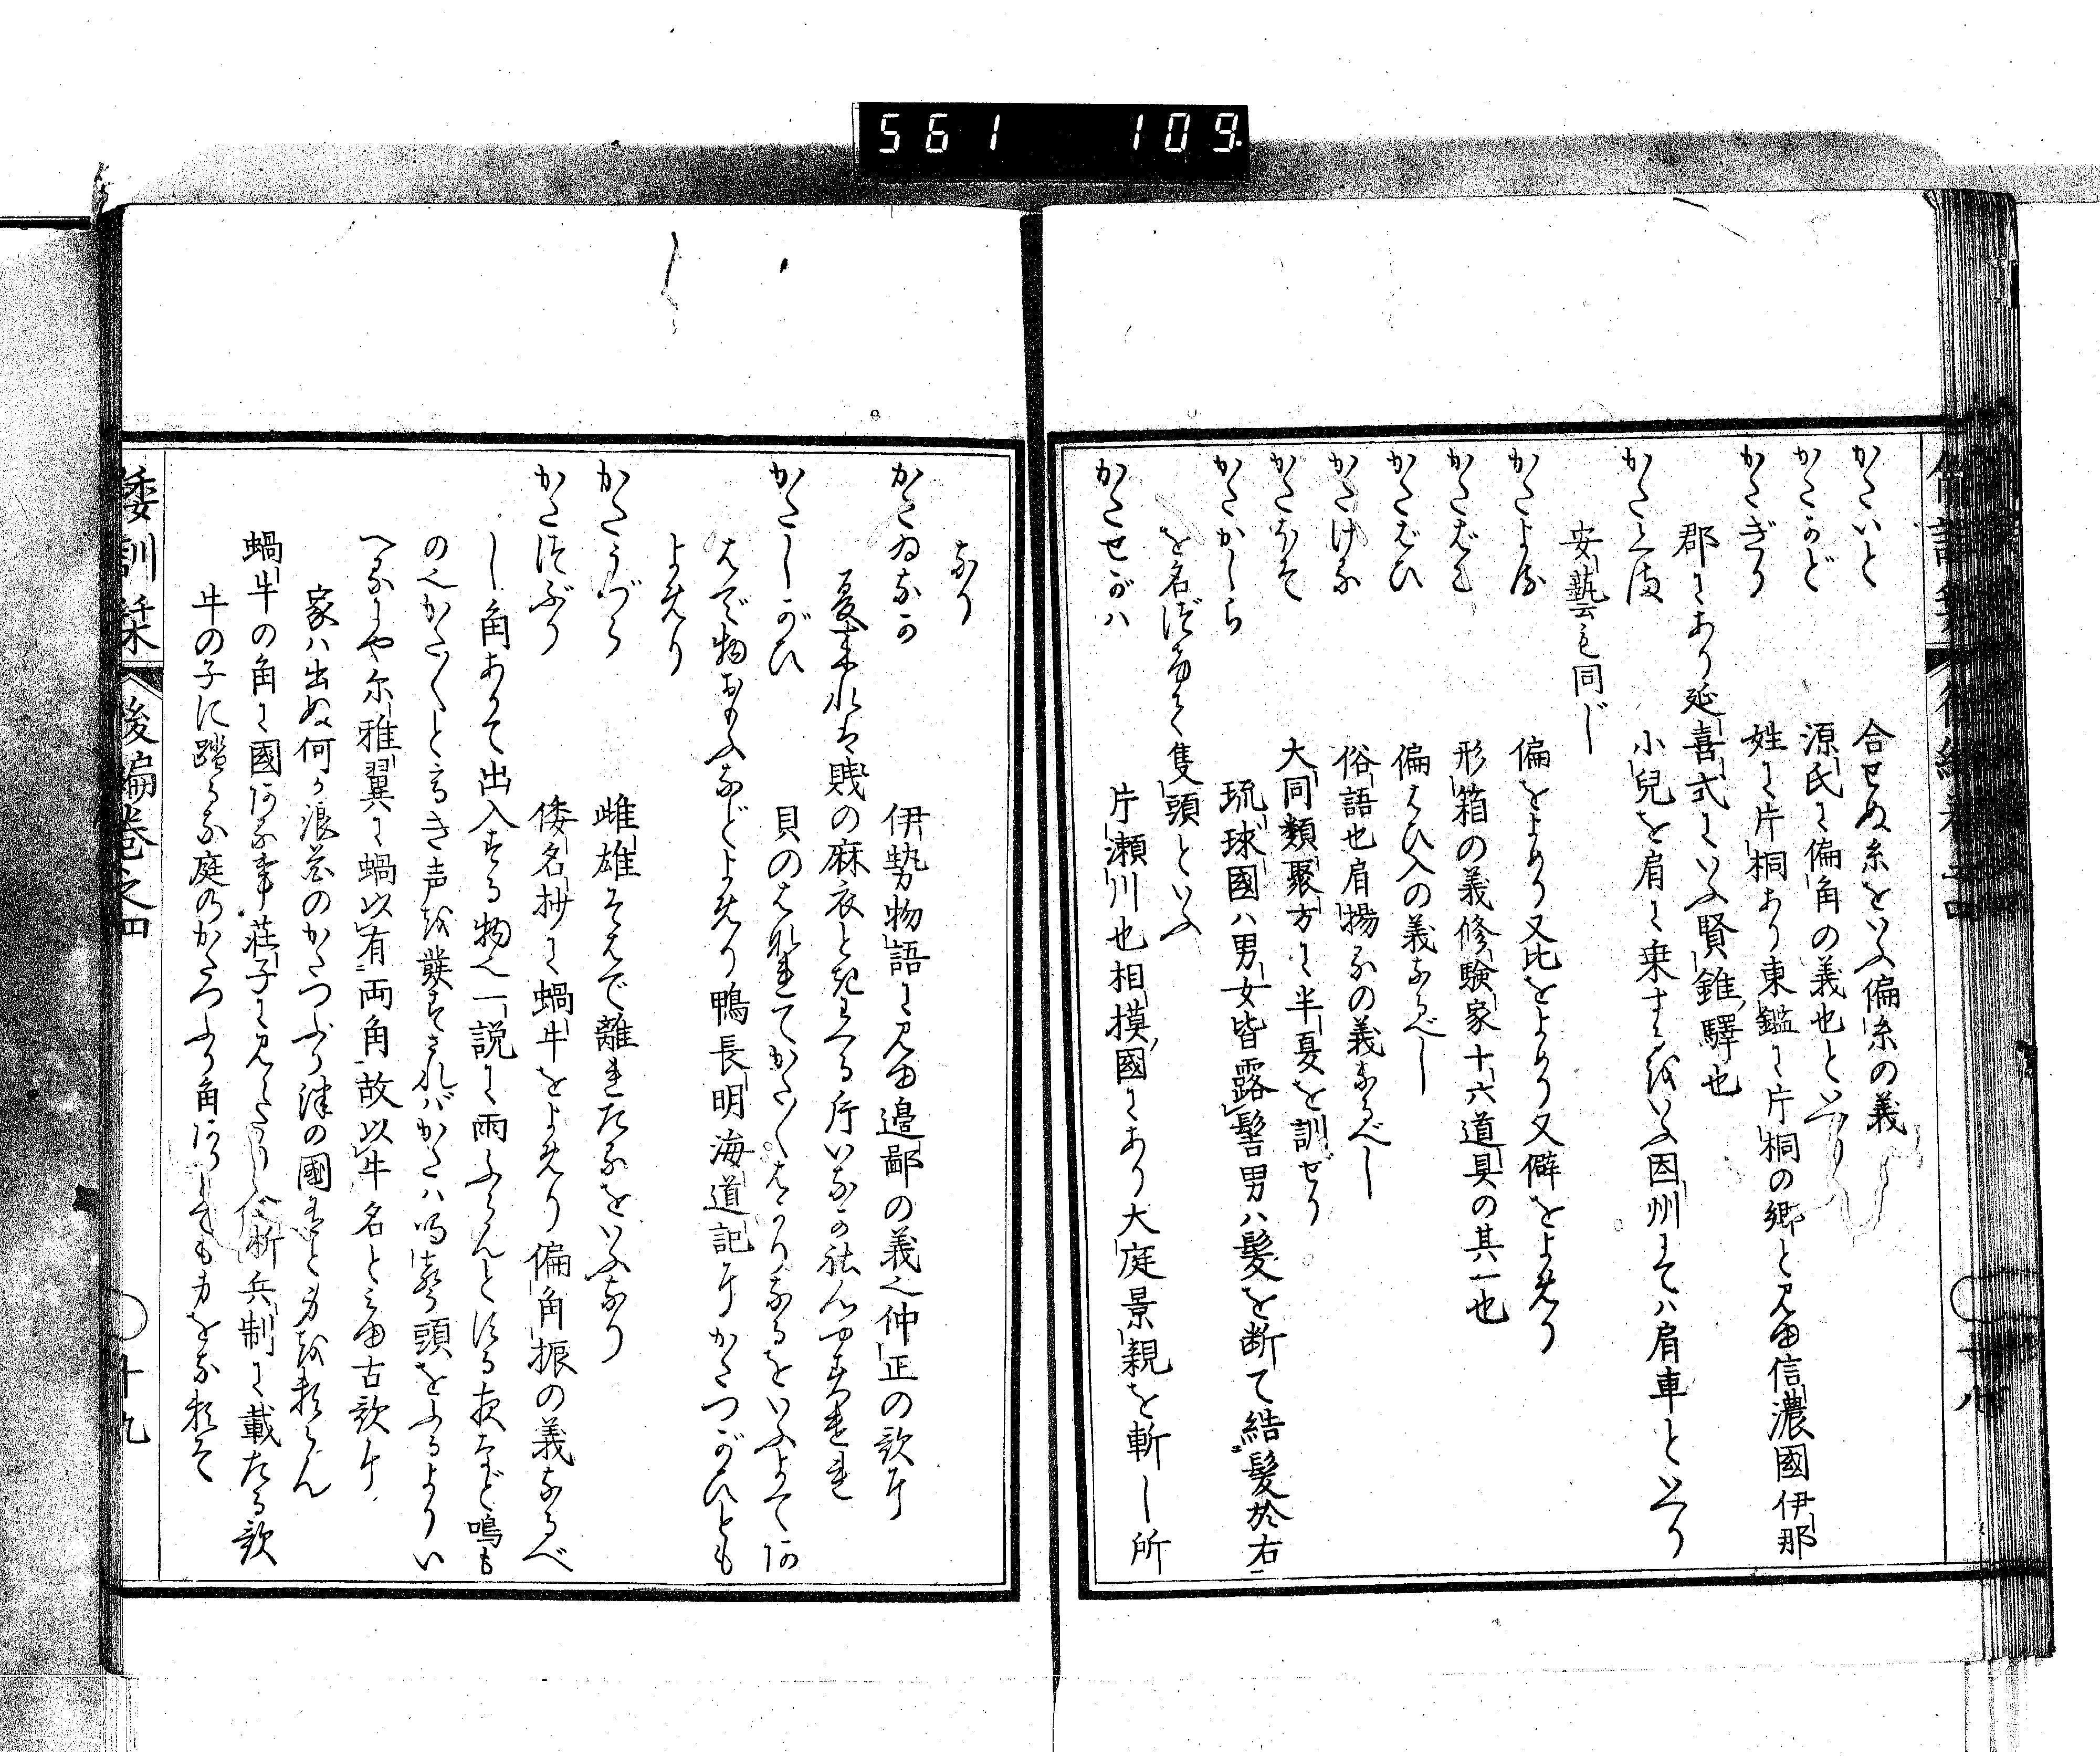 561 109.
かたいと 合せぬ糸をいふ偏糸の義
かたかど 源氏に偏角の義也といへり
かたぎり 姓に片桐あり東鑑に片桐の郷と見ゆ信濃國伊那
郡にあり延喜式にいふ賢錐驛也
かたくま 小兒を肩に乗するをいふ因州にては肩車といへり
安藝も同じ
かたよる 偏をよめり又比をよめり又僻をよめり
かたばこ 形箱の義修験家十六道具の其一也
かたばひ 偏はひ入の義なるべし
かたげる 俗語也肩揚るの義なるべし
かたほそ 大同類聚方に半夏を訓ぜり
かたかしら 琉球國ハ男女皆露髻男ハ髪を断て結髪於右
を名づけて隻頭といふ
かたせがハ 片瀬川也相摸國にあり大庭景親を斬し所
なり
かたゐなか 伊勢物語に見ゆ邉鄙の義也仲正の歌に
夏来れば賎の麻衣ときわくる片いなかこそ心やすけれ
かたしがひ 貝のはなれてかた〳〵ばかりなるをいふよてあ
はで物おもふなどよめり鴨長明海道記にかたつがひとも
よめり
かたうづら 雌雄そはで離れたるをいふなり
かたつぶり 倭名抄に蝸牛をよめり偏角振の義なるべ
し角ありて出入する物也一説に雨ふらんとする夜など鳴も
の也かた〳〵と高き声を發すされバかたハ鳴声頭をふるよりい
へるにや尓雅翼に蝸以有両角故以牛名と見ゆ古歌に
家ハ出ぬ何か浪花のかたつぶり津の國有と身を頼らん
蝸牛の角に國ある事荘子に見えたり新兵制に載たる歌
牛の子に踏るな庭のかたつふり角ありとても身をな頼そ
倭訓栞 後編巻之四 十九